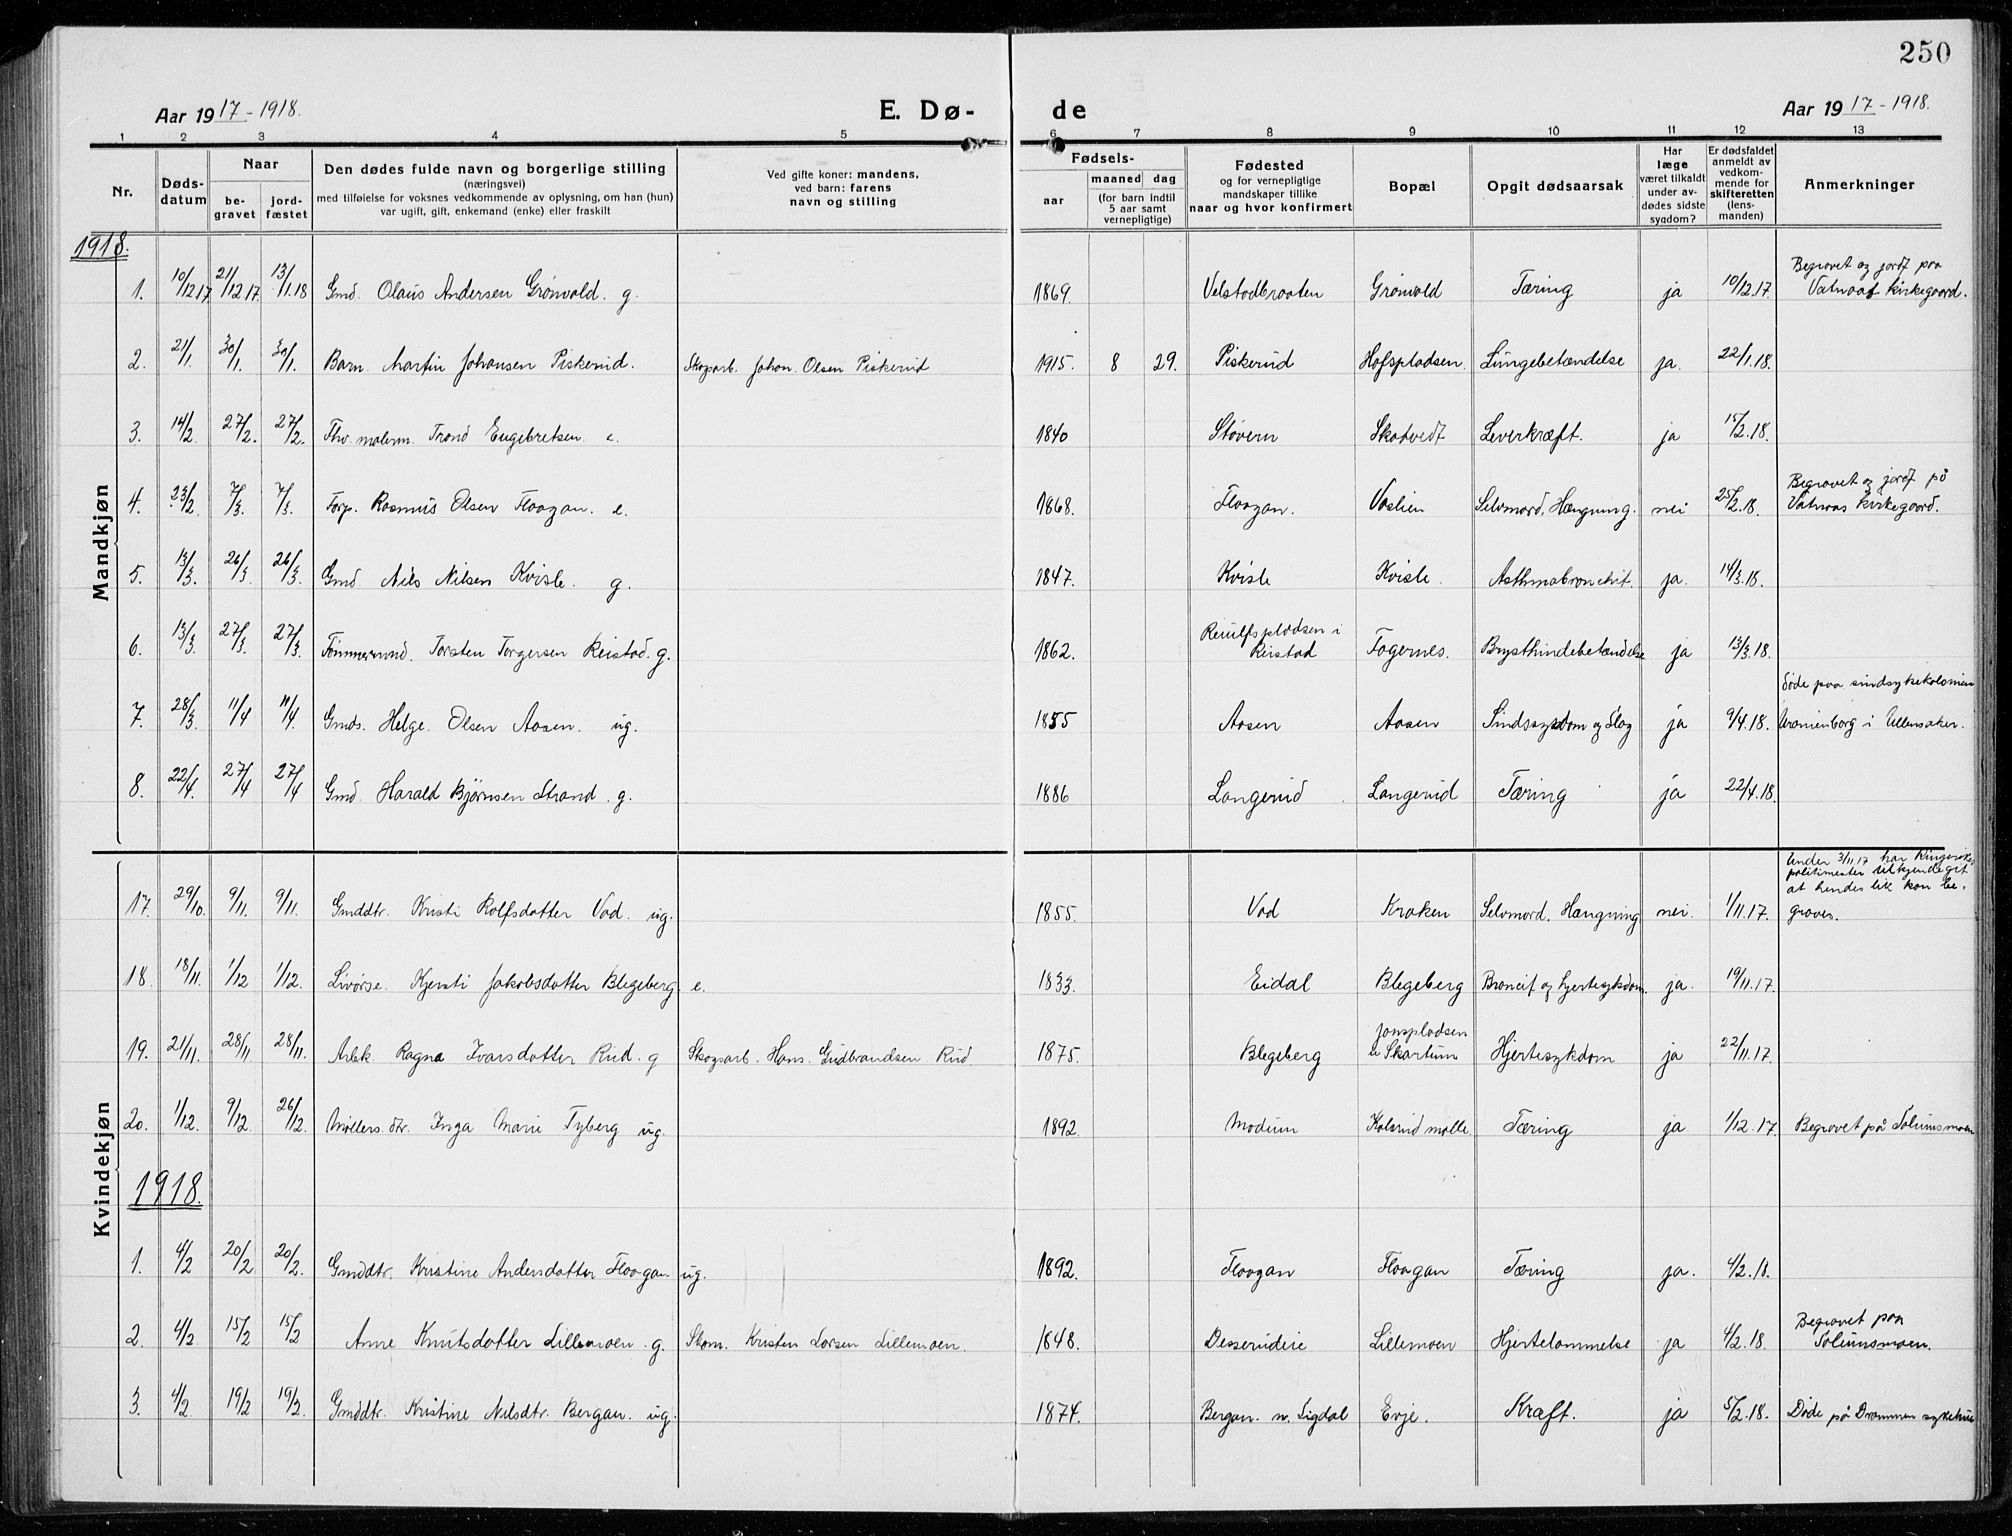 250
Aar 1917-1918.
E. Dø- de
Aar 1917-1918.
1 2 3 4 5 6 7 8 9 10 11 12 13
Nr.
Døds-
datum
Naar
be-
gravet
jord-
fæstet
Den dødes fulde navn og borgerlige stilling
(næringsvei)
med tilføielse for voksnes vedkommende av oplysning, om han (hun)
var ugift, gift, enkemand (enke) eller fraskilt
Ved gifte koner: mandens,
ved barn: farens
navn og stilling
Fødsels-
aar
maaned dag
(for barn indtil
5 aar samt
vernepligtige)
Fødested
og for vernepligtige
mandskaper tillike
naar og hvor konfirmert
Bopæl
Opgit dødsaarsak
Har
læge
været tilkaldt
under av-
dødes sidste
sygdom?
Er dødsfaldet
anmeldt av
vedkom-
mende for
skifteretten
(lens-
manden)
Anmerkninger
Mandkjøn
1918.
1. 10/12 17 21/12 17. 13/1.18 Gmd. Olaus Andersen Grønvold. g. 1869. Velstadbraaten Grønvold Tæring ja 10/12.17. Begravet og jordf paa
Vatnaas kirkegaard.
2. 21/1. 30/1. 30/1. Barn. Martin Johansen Piskerud. Skogarb. Johan Olsen Piskerud 1915. 8 29. Piskerud Hofspladsen. Lungebetændelse ja. 22/1.18.
3. 14/2. 27/2. 27/2. Fhv. malerm. Trond Engebretsen. e. 1840 Støvern Skatvedt Leverkræft. ja 15/2.18.
4. 23/2. 7/3. 7/3. Forp. Rasmus Olsen Flaagan. e. 1868. Flaagan. Vaslien Selvmord, Hængning. nei 25/2.18. Begravet og jordf på
Vatnaas kirkegaard.
5. 13/3. 26/3 26/3. Gmd Nils Nilsen Kvisle. g. 1847. Kvisle Kvisle. Asthmabronchit. ja. 14/3.18.
6. 13/3. 27/3. 27/3. Tømmermd. Torsten Torgersen Reistad. g. 1862. Reiulfspladsen i
Reistad Fagernes. Brysthindebetændelse ja 13/3.18.
7. 28/3. 11/4 11/4. Gmds. Helge Olsen Aasen. ug. 1855 Aasen Aasen Sindssykdom og Slag ja 9/4.18. Døde paa sindsykekolonien
Uranienborg i Ullensaker.
8. 22/4. 27/4 27/4 Gmd. Harald Bjørnsen Strand. g. 1886 Langerud Langerud Tæring ja 22/4.18.
Kvindekjøn
17. 29/10. 9/11. 9/11. Gmddtr. Kristi Rolfsdatter Vad. ug. 1855. Vad Kraken Selvmord. Hængning nei. 1/11.17. Under 3/11.17 har Ringerikes
politimester tilkjendegit
at hendes lik kan be-
graves.
18. 18/11. 1/12 1/12. Livørse. Kjersti Jakobsdatter Blegeberg. e. 1833. Eidal Blegeberg Broncit og hjertesykdom. ja. 19/11.17.
19. 21/11. 28/11 28/11. Arbk. Ragna Ivarsdatter Rud. g Skogsarb. Hans Gudbrandsen Rud. 1875. Blegeberg Jonspladsen
u Skartum Hjertesykdom ja 22/11.17.
20. 1/12. 9/12. 26/12. Møllers dtr. Inga Marie Tyberg ug. 1892. Modum Kolsrud mølle Tæring ja 1/12.17. Begravet på Solumsmoen
1918.
1. 4/2 20/2 20/2. Gmddtr. Kristine Andersdatter Flaagan ug. 1892. Flaagan Flaagan Tæring ja. 4/2.18.
2. 4/2 15/2 15/2 Anne Knutsdatter Lillemoen. g. Skom. Kristen Larsen Lillemoen. 1848. Desserudeie Lillemoen Hjertelammelse ja 4/2.18. Begravet paa
Solumsmoen.
3. 4/2. 19/2 19/2. Gmddtr. Kristine Nilsdtr. Bergan. ug. 1874. Bergan. n. Sigdal Evje. Kræft. ja 5/2.18. Døde på Drammen sykehus